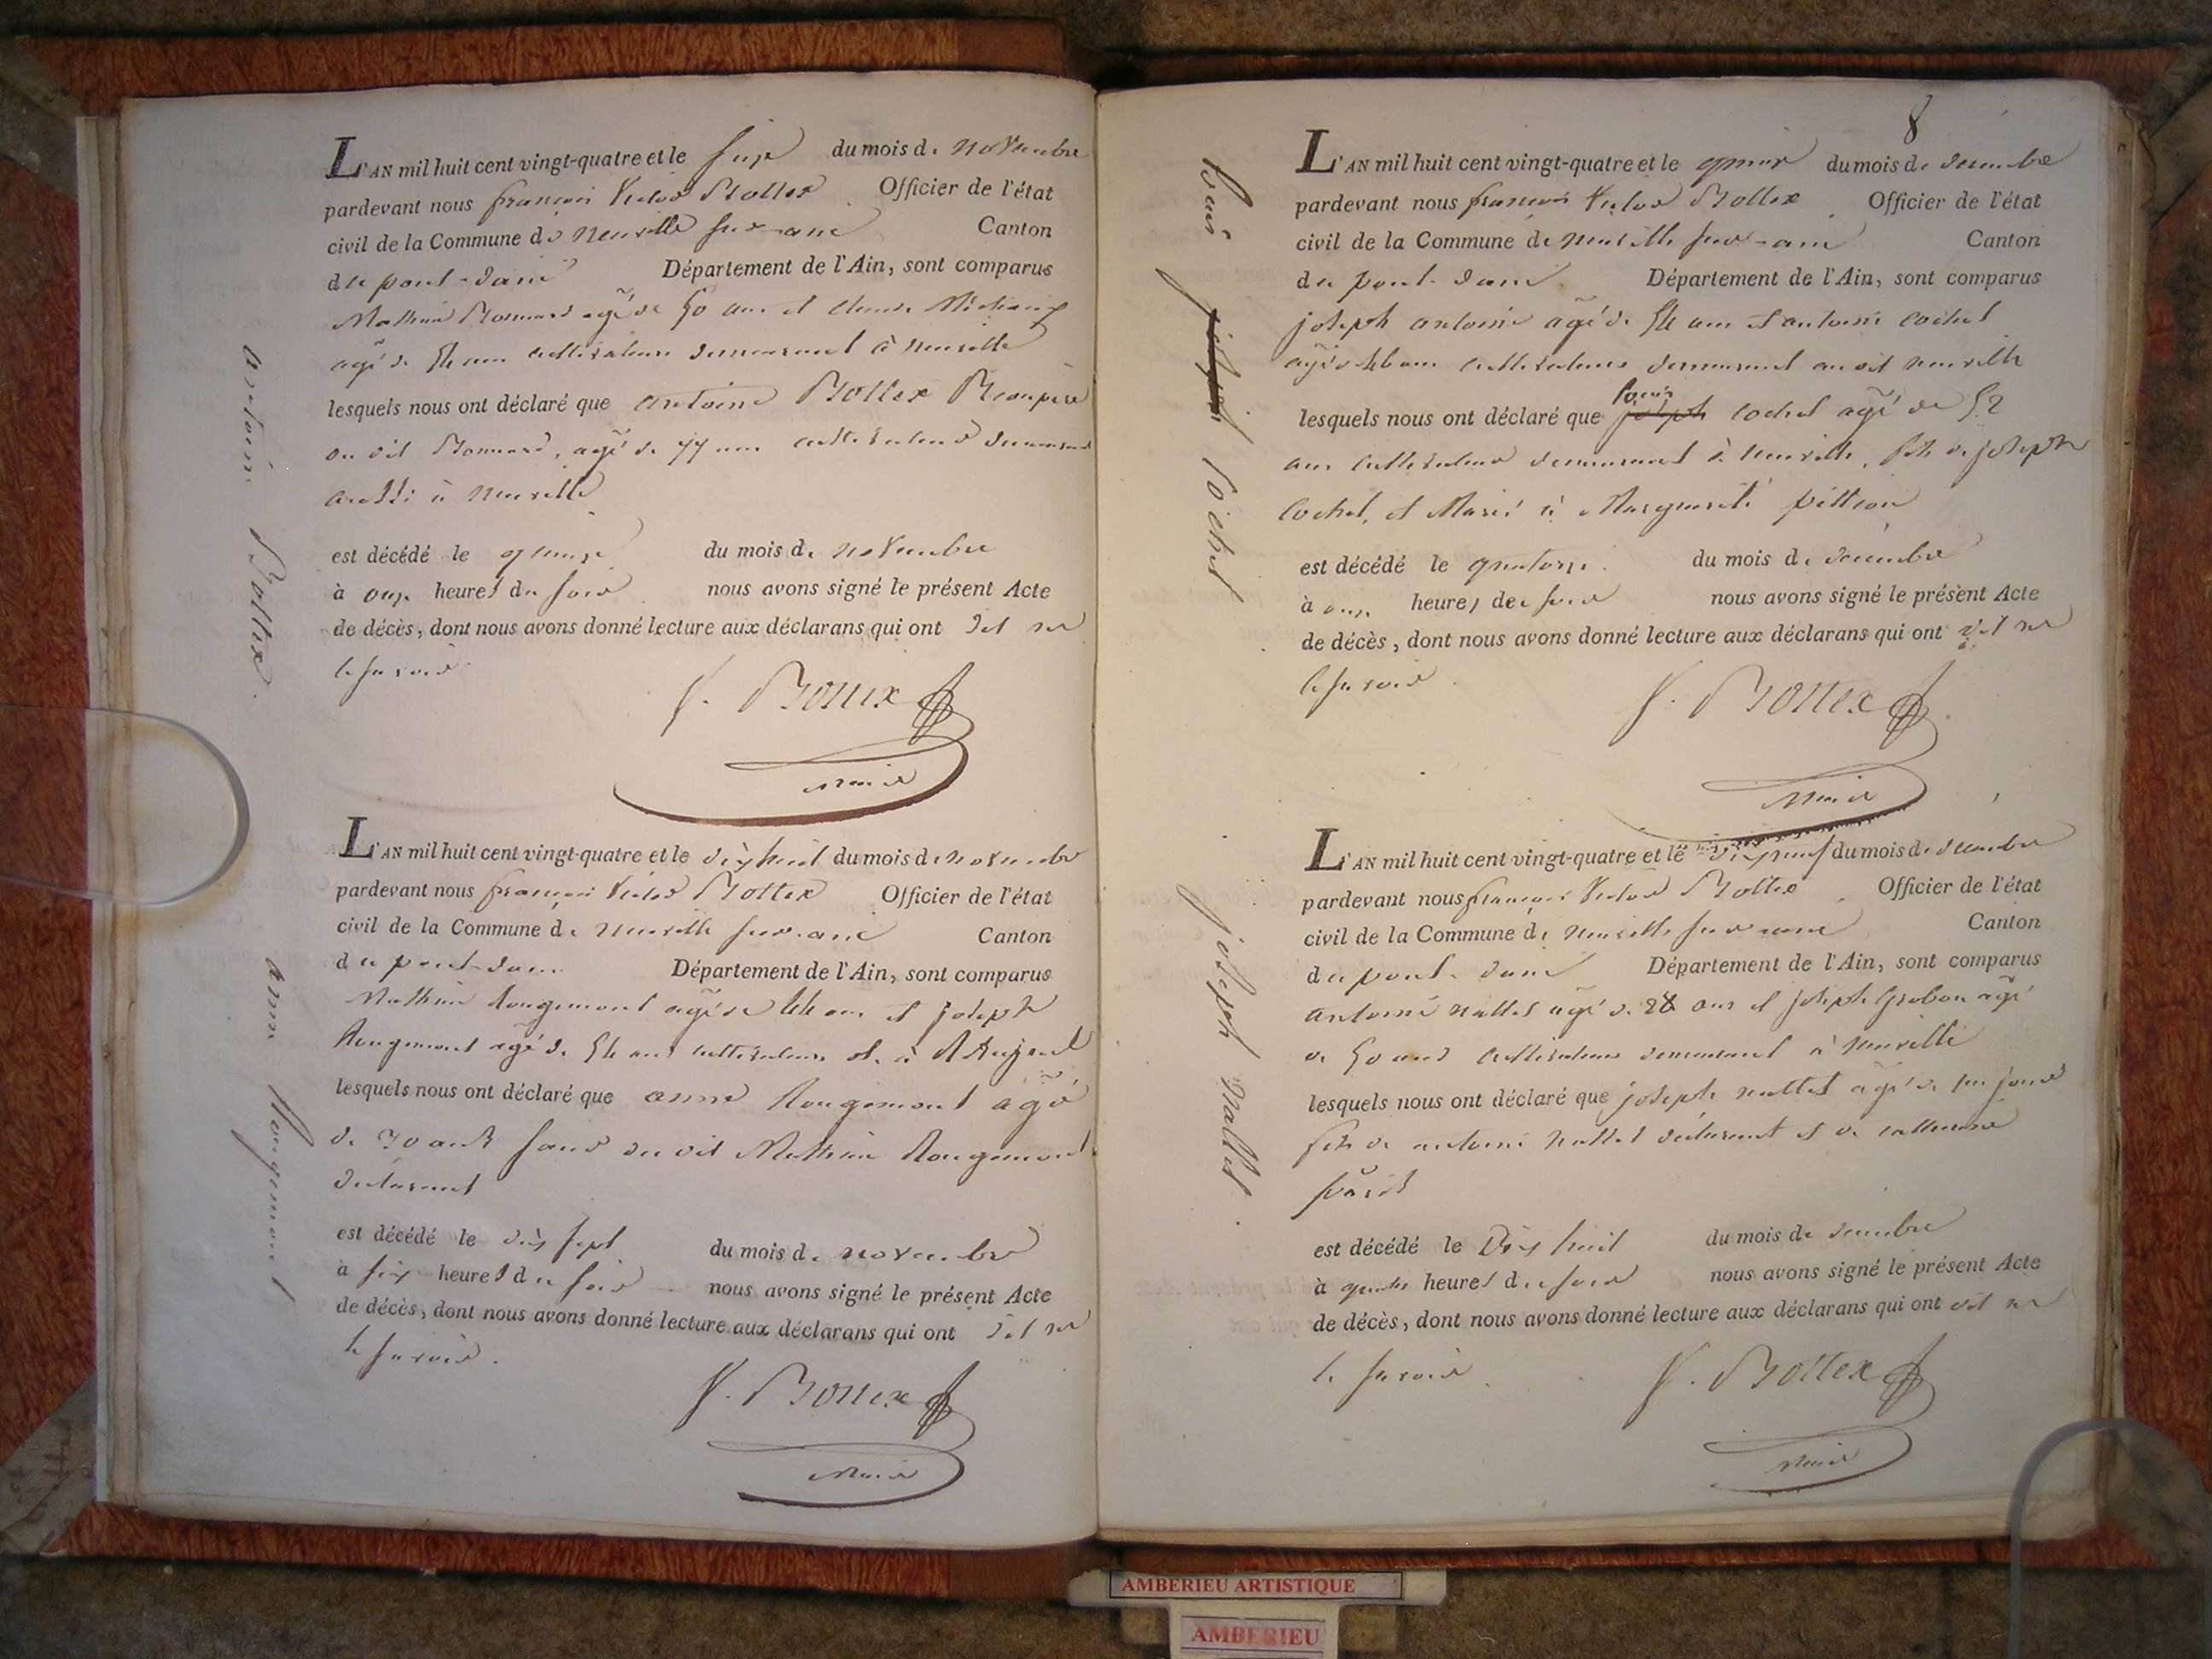 antoine Bottex.
L'AN mil huit cent vingt-quatre et le seize du mois de novembre
pardevant nous françois Victor Bottex Officier de l'état
civil de la Commune de neuville sur-ain Canton
du pont-dain Département de l'Ain, sont comparus
Mathieu Bonnard agé de 50 ans et
agé de ans cultivateurs demeurant à neuville
lesquels nous ont déclaré que antoine Bottex Beaupère
du dit Bonnard, agé de 77 ans cultivateur demeurant
aussi à neuville
est décédé le quinze du mois de novembre
à onze heures du soir nous avons signé le présent Acte
de décès, dont nous avons donné lecture aux déclarans qui ont dit ne
le savoir
V. Bottex
Maire
anne Rougemont
L'AN mil huit cent vingt-quatre et le dix huit du mois de novembre
pardevant nous françois Victor Bottex Officier de l'état
civil de la Commune de neuville sur-ain Canton
du pont-dain Département de l'Ain, sont comparus
Mathieu Rougemont agé de ans et joseph
Rougemont agé de ans cultivateurs à
lesquels nous ont déclaré que anne Rougemont agé
de 70 ans soeur du dit Mathieu Rougemont
déclarant
est décédé le dix sept du mois de novembre
à six heures du soir nous avons signé le présent Acte
de décès, dont nous avons donné lecture aux déclarans qui ont dit ne
le savoir.
V. Bottex
Maire
8
Louis joseph Cochet
L'AN mil huit cent vingt-quatre et le quinze du mois de decembre
pardevant nous françois Victor Bottex Officier de l'état
civil de la Commune de neuville sur-ain Canton
du pont-dain Département de l'Ain, sont comparus
joseph antoine agé de ans et antoine cochet
agé de ans cultivateurs demeurant au dit neuville
lesquels nous ont déclaré que joseph Louis cochet agé de 52
ans cultivateur demeurant à neuville, fils de joseph
Cochet, et Marié à Marguerite pittion
est décédé le quatorze du mois de decembre
à onze heures du soir nous avons signé le présent Acte
de décès, dont nous avons donné lecture aux déclarans qui ont dit ne
le savoir.
V. Bottex
Maire
joseph nallet.
L'AN mil huit cent vingt-quatre et le dix neuf du mois de decembre
pardevant nous françois Victor Bottex Officier de l'état
civil de la Commune de neuville sur-ain Canton
du pont-dain Département de l'Ain, sont comparus
antoine nallet agé de 28 ans et joseph Grobon agé
de 50 ans cultivateurs demeurant à neuville
lesquels nous ont déclaré que joseph nallet agé de jours
fils de antoine nallet déclarant et de catherine
est décédé le Dix huit du mois de decembre
à quatre heures du soir nous avons signé le présent Acte
de décès, dont nous avons donné lecture aux déclarans qui ont dit ne
le savoir
V. Bottex
Maire
AMBERIEU ARTISTIQUE
AMBERIEU